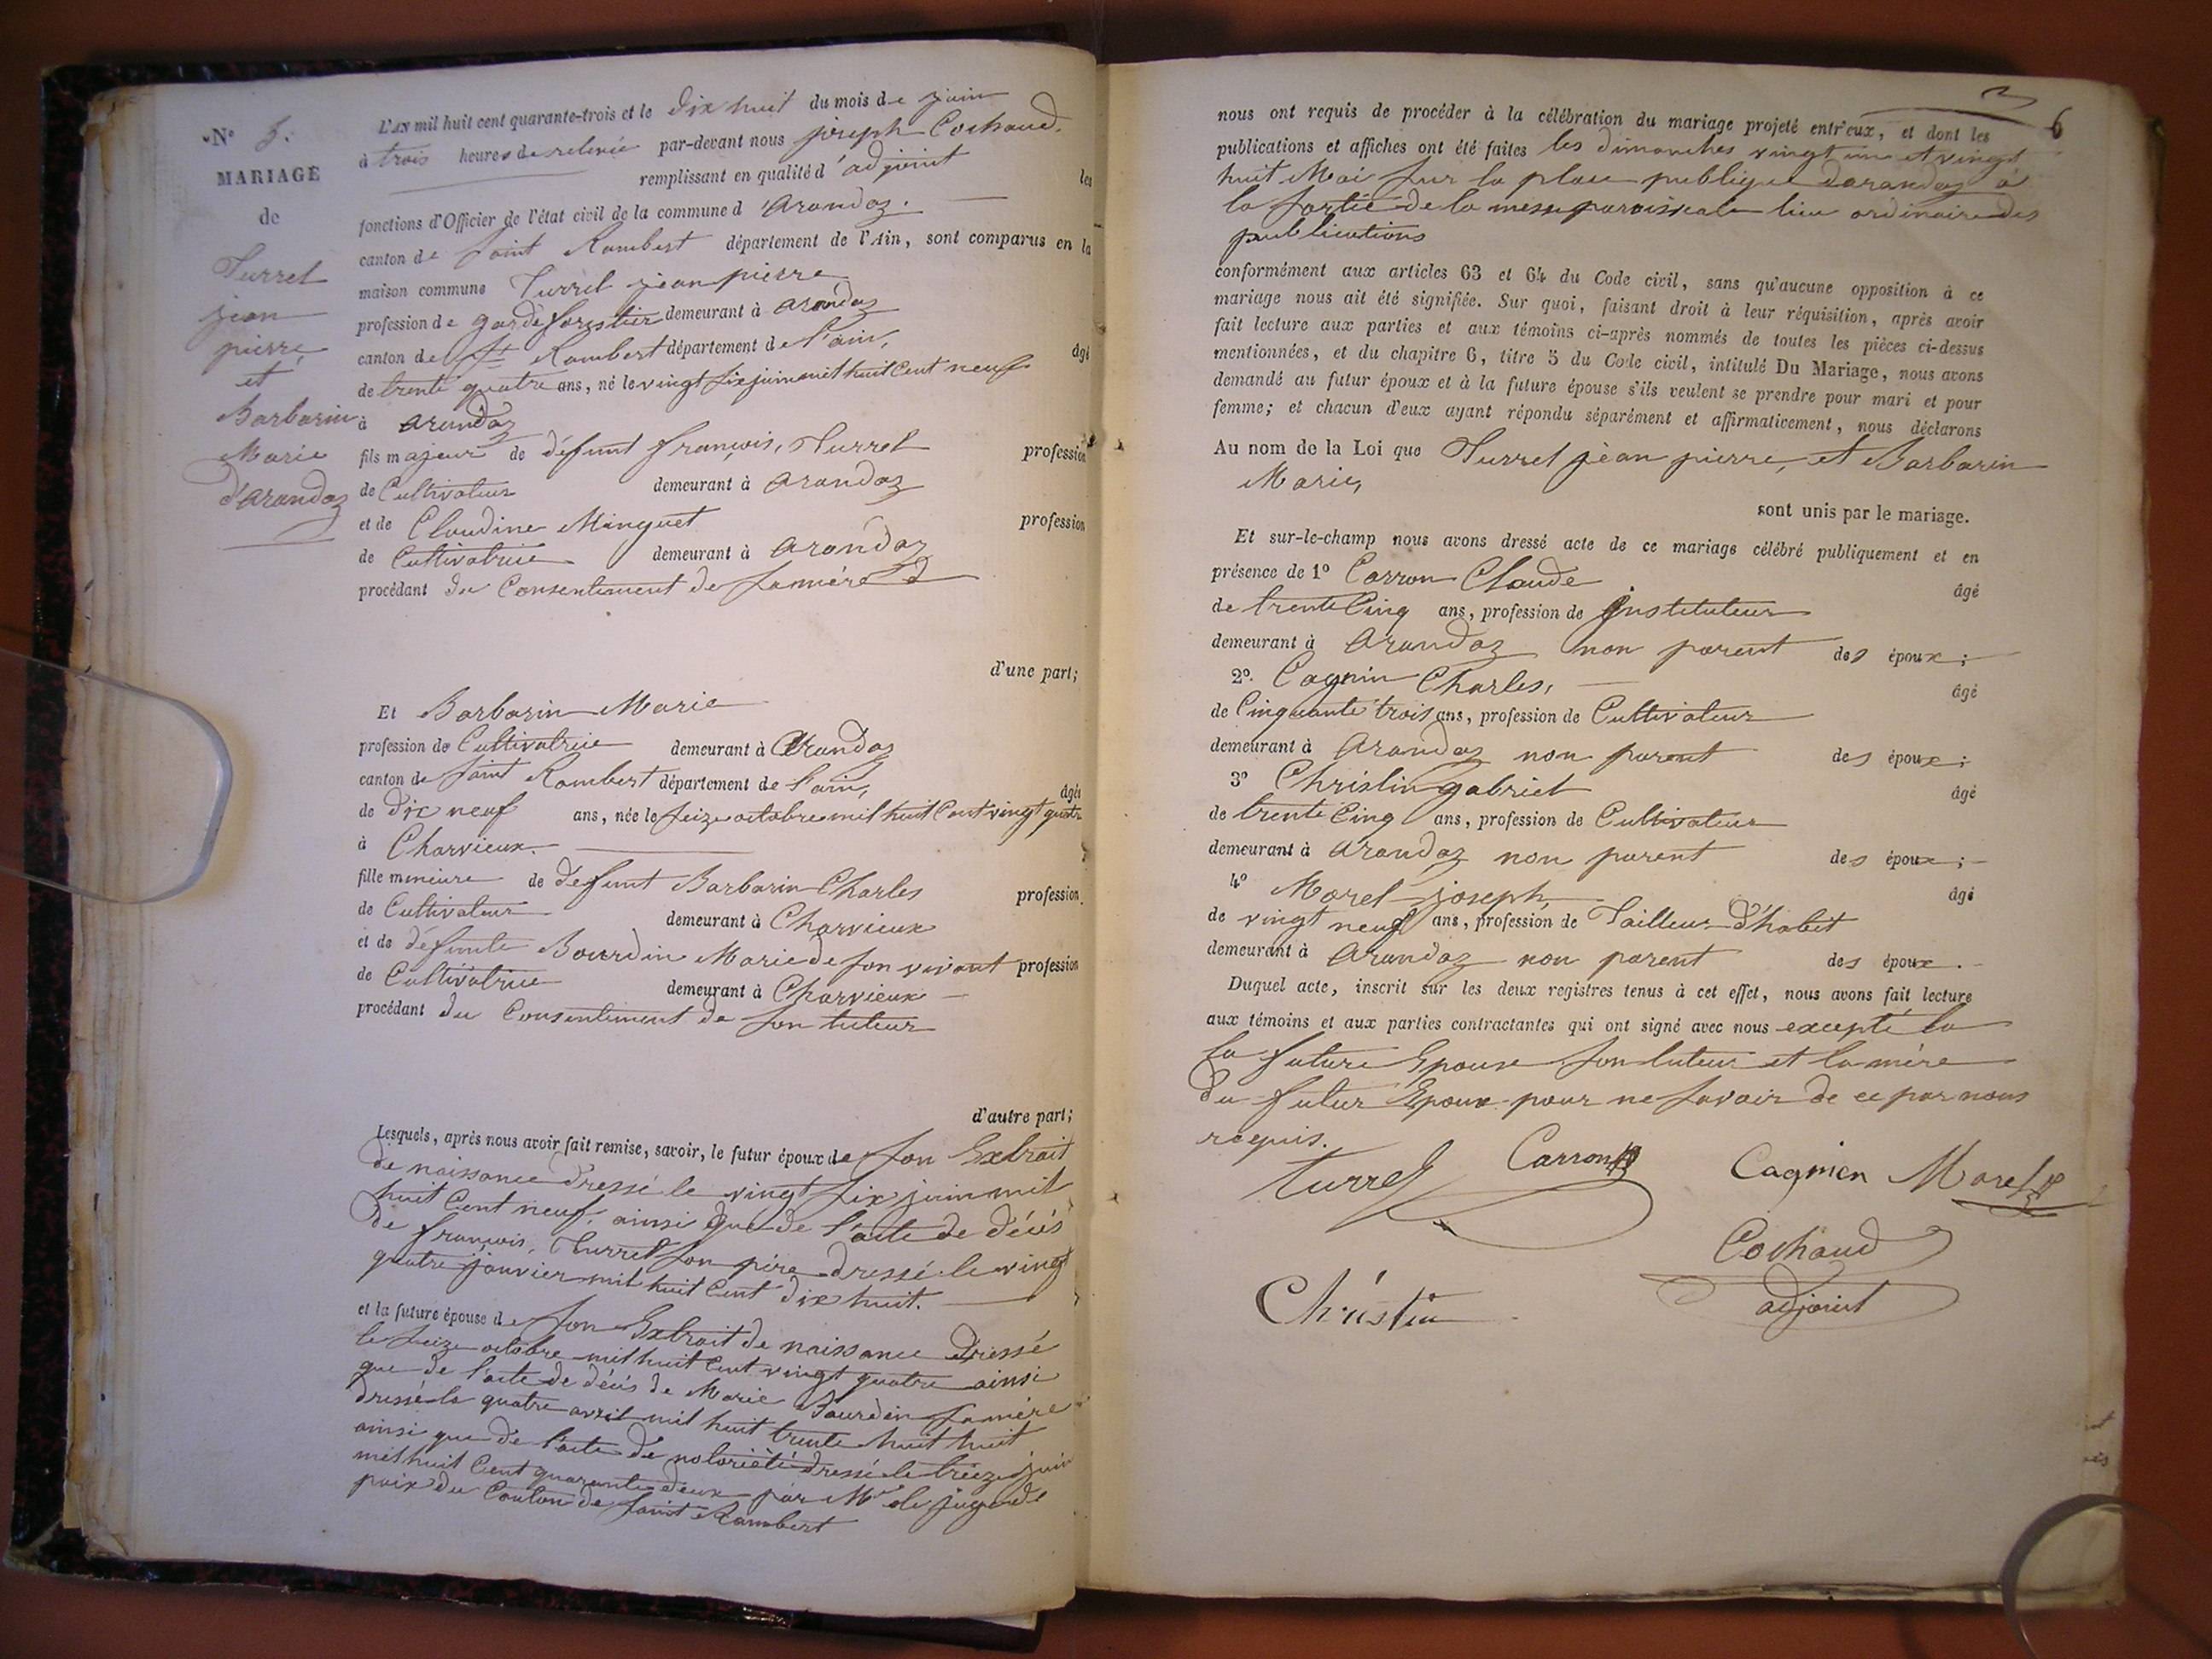 N° 5.
MARIAGE
de
Turrel
jean
pierre
et
Barbarin
Marie
d'arandaz
L'AN mil huit cent quarante-trois et le dix huit du mois de juin
à trois heures de relevée par-devant nous joseph Cochaud.
remplissant en qualité d'adjoint les
fonctions d'Officier de l'état civil de la commune d'Arandaz.
canton de Saint Rambert département de l'Ain, sont comparus en la
maison commune Turrel jean pierre
profession de garde forestier demeurant à Arandaz
canton de St Rambert département de l'ain, âgé
de trente quatre ans, né le vingt six juin mil huit Cent neuf
à arandaz
fils majeur de défunt françois, Turrel profession
de Cultivateur demeurant à Arandaz
et de Claudine Minguet profession
de Cultivatrice demeurant à Arandaz
procédant du Consentement de sa mère
d'une part;
Et Barbarin Marie
profession de Cultivatrice demeurant à Arandaz
canton de Saint Rambert département de l'ain, âgée
de dix neuf ans, née le seize octobre mil huit Cent vingt quatre
à Charvieux.
fille mineure de défunt Barbarin Charles profession
de Cultivateur demeurant à Charvieux
et de défunte Bourdin Marie de son vivant profession
de Cultivatrice demeurant à Charvieux
procédant du Consentement de son tuteur
d'autre part;
Lesquels, après nous avoir fait remise, savoir, le futur époux de son Extrait
de naissance dressé le vingt six juin mil
huit Cent neuf, ainsi que de l'acte de décès
de françois, Turrel son père dressé le vingt
quatre janvier mil huit Cent dix huit.
et la future épouse de son Extrait de naissance dressé
le seize octobre mil huit Cent vingt quatre ainsi
que de l'acte de décès de Marie Bourdin sa mère
dressé le quatre avril mil huit trente huit huit
ainsi que de l'acte de notoriété dressé le treize juin
mil huit Cent quarante deux par Mr le juge de
paix du Canton de Saint Rambert
6
nous ont requis de procéder à la célébration du mariage projeté entr'eux, et dont les
publications et affiches ont été faites les dimanches vingt un et vingt
huit Mai sur la place publique darandaz à
la sortie de la messe paroissiale lieu ordinaire des
publications
conformément aux articles 63 et 64 du Code civil, sans qu'aucune opposition à ce
mariage nous ait été signifiée. Sur quoi, faisant droit à leur réquisition, après avoir
fait lecture aux parties et aux témoins ci-après nommés de toutes les pièces ci-dessus
mentionnées, et du chapitre 6, titre 5 du Code civil, intitulé Du Mariage, nous avons
demandé au futur époux et à la future épouse s'ils veulent se prendre pour mari et pour
femme; et chacun d'eux ayant répondu séparément et affirmativement, nous déclarons
Au nom de la Loi que Turrel jean pierre, et Barbarin
Marie,
sont unis par le mariage.
Et sur-le-champ nous avons dressé acte de ce mariage célébré publiquement et en
présence de 1° Carron Claude âgé
de trente Cinq ans, profession de Instituteur
demeurant à Arandaz non parent des époux;
2°. Cagnin Charles, âgé
de Cinquante trois ans, profession de Cultivateur
demeurant à Arandaz non parent des époux;
3° Christin gabriel âgé
de trente Cinq ans, profession de Cultivateur
demeurant à Arandaz non parent des époux;
4° Morel joseph, âgé
de vingt neuf ans, profession de Tailleur d'habit
demeurant à Arandaz non parent des époux.
Duquel acte, inscrit sur les deux registres tenus à cet effet, nous avons fait lecture
aux témoins et aux parties contractantes qui ont signé avec nous excepté la
la future Epouse son tuteur et la mère
du futur Epoux pour ne savoir de ce par nous
requis.
turrel Carron Cagnien Morel
Cochaud
Christin adjoint